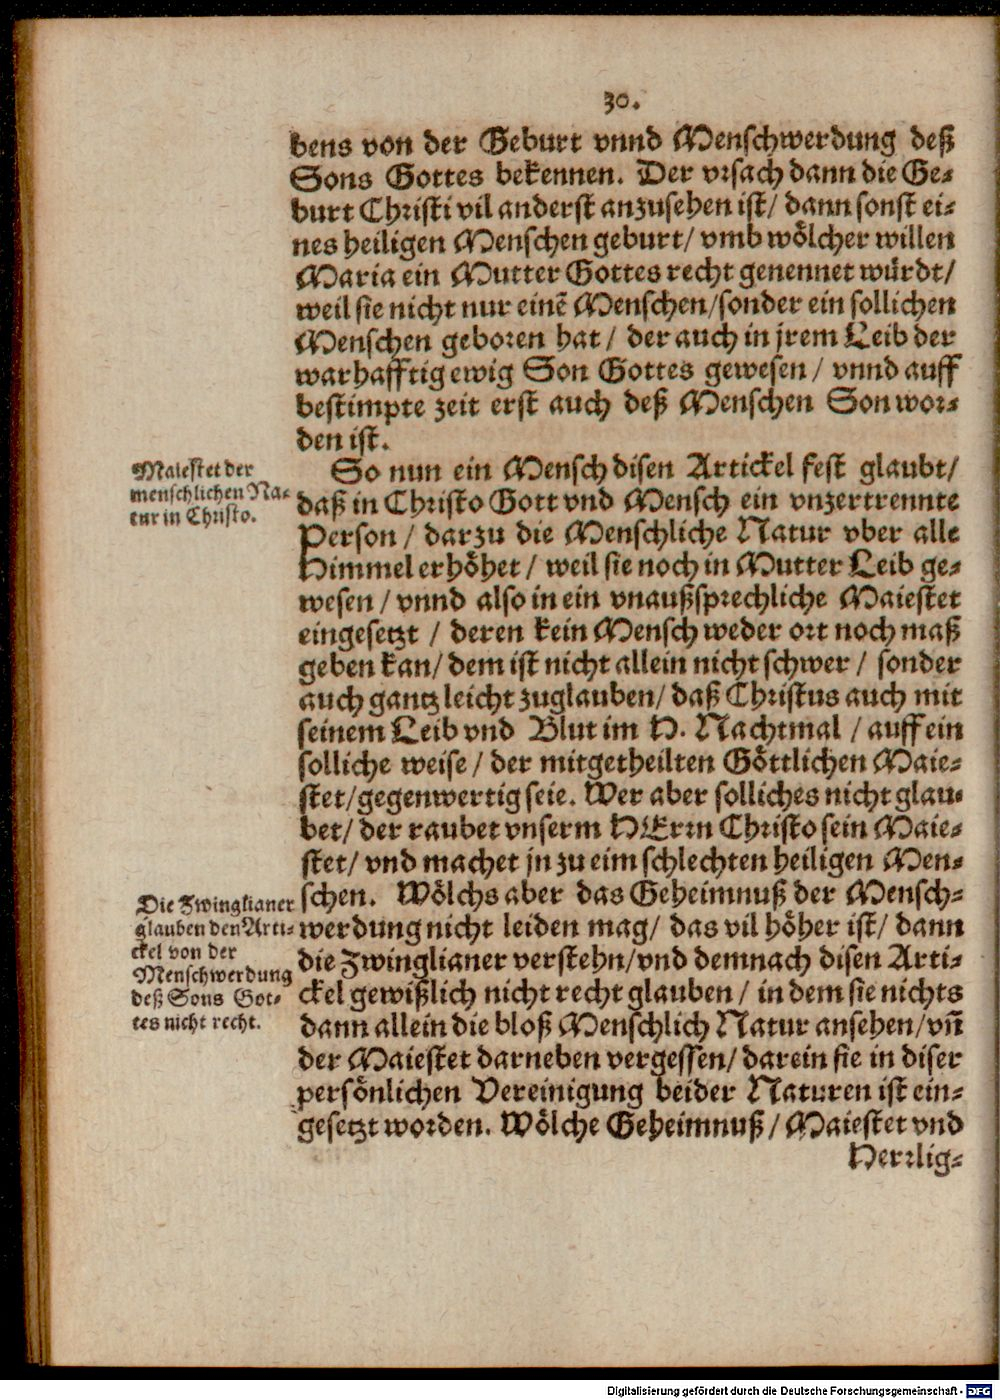 30.
bens von der Geburt vnnd Menschwerdung deß
Sons Gottes bekennen. Der vrsach dann die Ge-
burt Christi vil anderst anzusehen ist/ dann sonst ei-
nes heiligen Menschen geburt/ vmb wölcher willen
Maria ein Mutter Gottes recht genennet würdt/
weil sie nicht nur einē Menschen/sonder ein sollichen
Menschen geboren hat/ der auch in jrem Leib der
warhafftig ewig Son Gottes gewesen/ vnnd auff
bestimpte zeit erst auch deß Menschen Son wor-
den ist.
Maiestet der
menschlichen Na-
tur in Christo.
So nun ein Mensch disen Artickel fest glaubt/
daß in Christo Gott vnd Mensch ein vnzertrennte
Person/ darzu die Menschliche Natur vber alle
Himmel erhöhet/ weil sie noch in Mutter Leib ge-
wesen/ vnnd also in ein vnaußsprechliche Maiestet
eingesetzt/ deren kein Mensch weder ort noch maß
geben kan/ dem ist nicht allein nicht schwer/ sonder
auch gantz leicht zuglauben/ daß Christus auch mit
seinem Leib vnd Blut im H. Nachtmal/ auff ein
solliche weise/ der mitgetheilten Göttlichen Maie-
stet/gegenwertig seie. Wer aber solliches nicht glau-
bet/ der raubet vnserm HErrn Christo sein Maie-
stet/ vnd machet jn zu eim schlechten heiligen Men-
schen. Wölchs aber das Geheimnuß der Mensch-
werdung nicht leiden mag/ das vil höher ist/ dann
die Zwinglianer verstehn/vnd demnach disen Arti-
ckel gewißlich nicht recht glauben/ in dem sie nichts
dann allein die bloß Menschlich Natur ansehen/vn̄
der Maiestet darneben vergessen/ darein sie in diser
persönlichen Vereinigung beider Naturen ist ein-
gesetzt worden. Wölche Geheimnuß/ Maiestet vnd
Die Zwinglianer
glauben den Arti-
ckel von der
Menschwerdung
deß Sons Got-
tes nicht recht.
Herrlig-
Digitalisierung gefördert durch die Deutsche Forschungsgemeinschaft - DFG